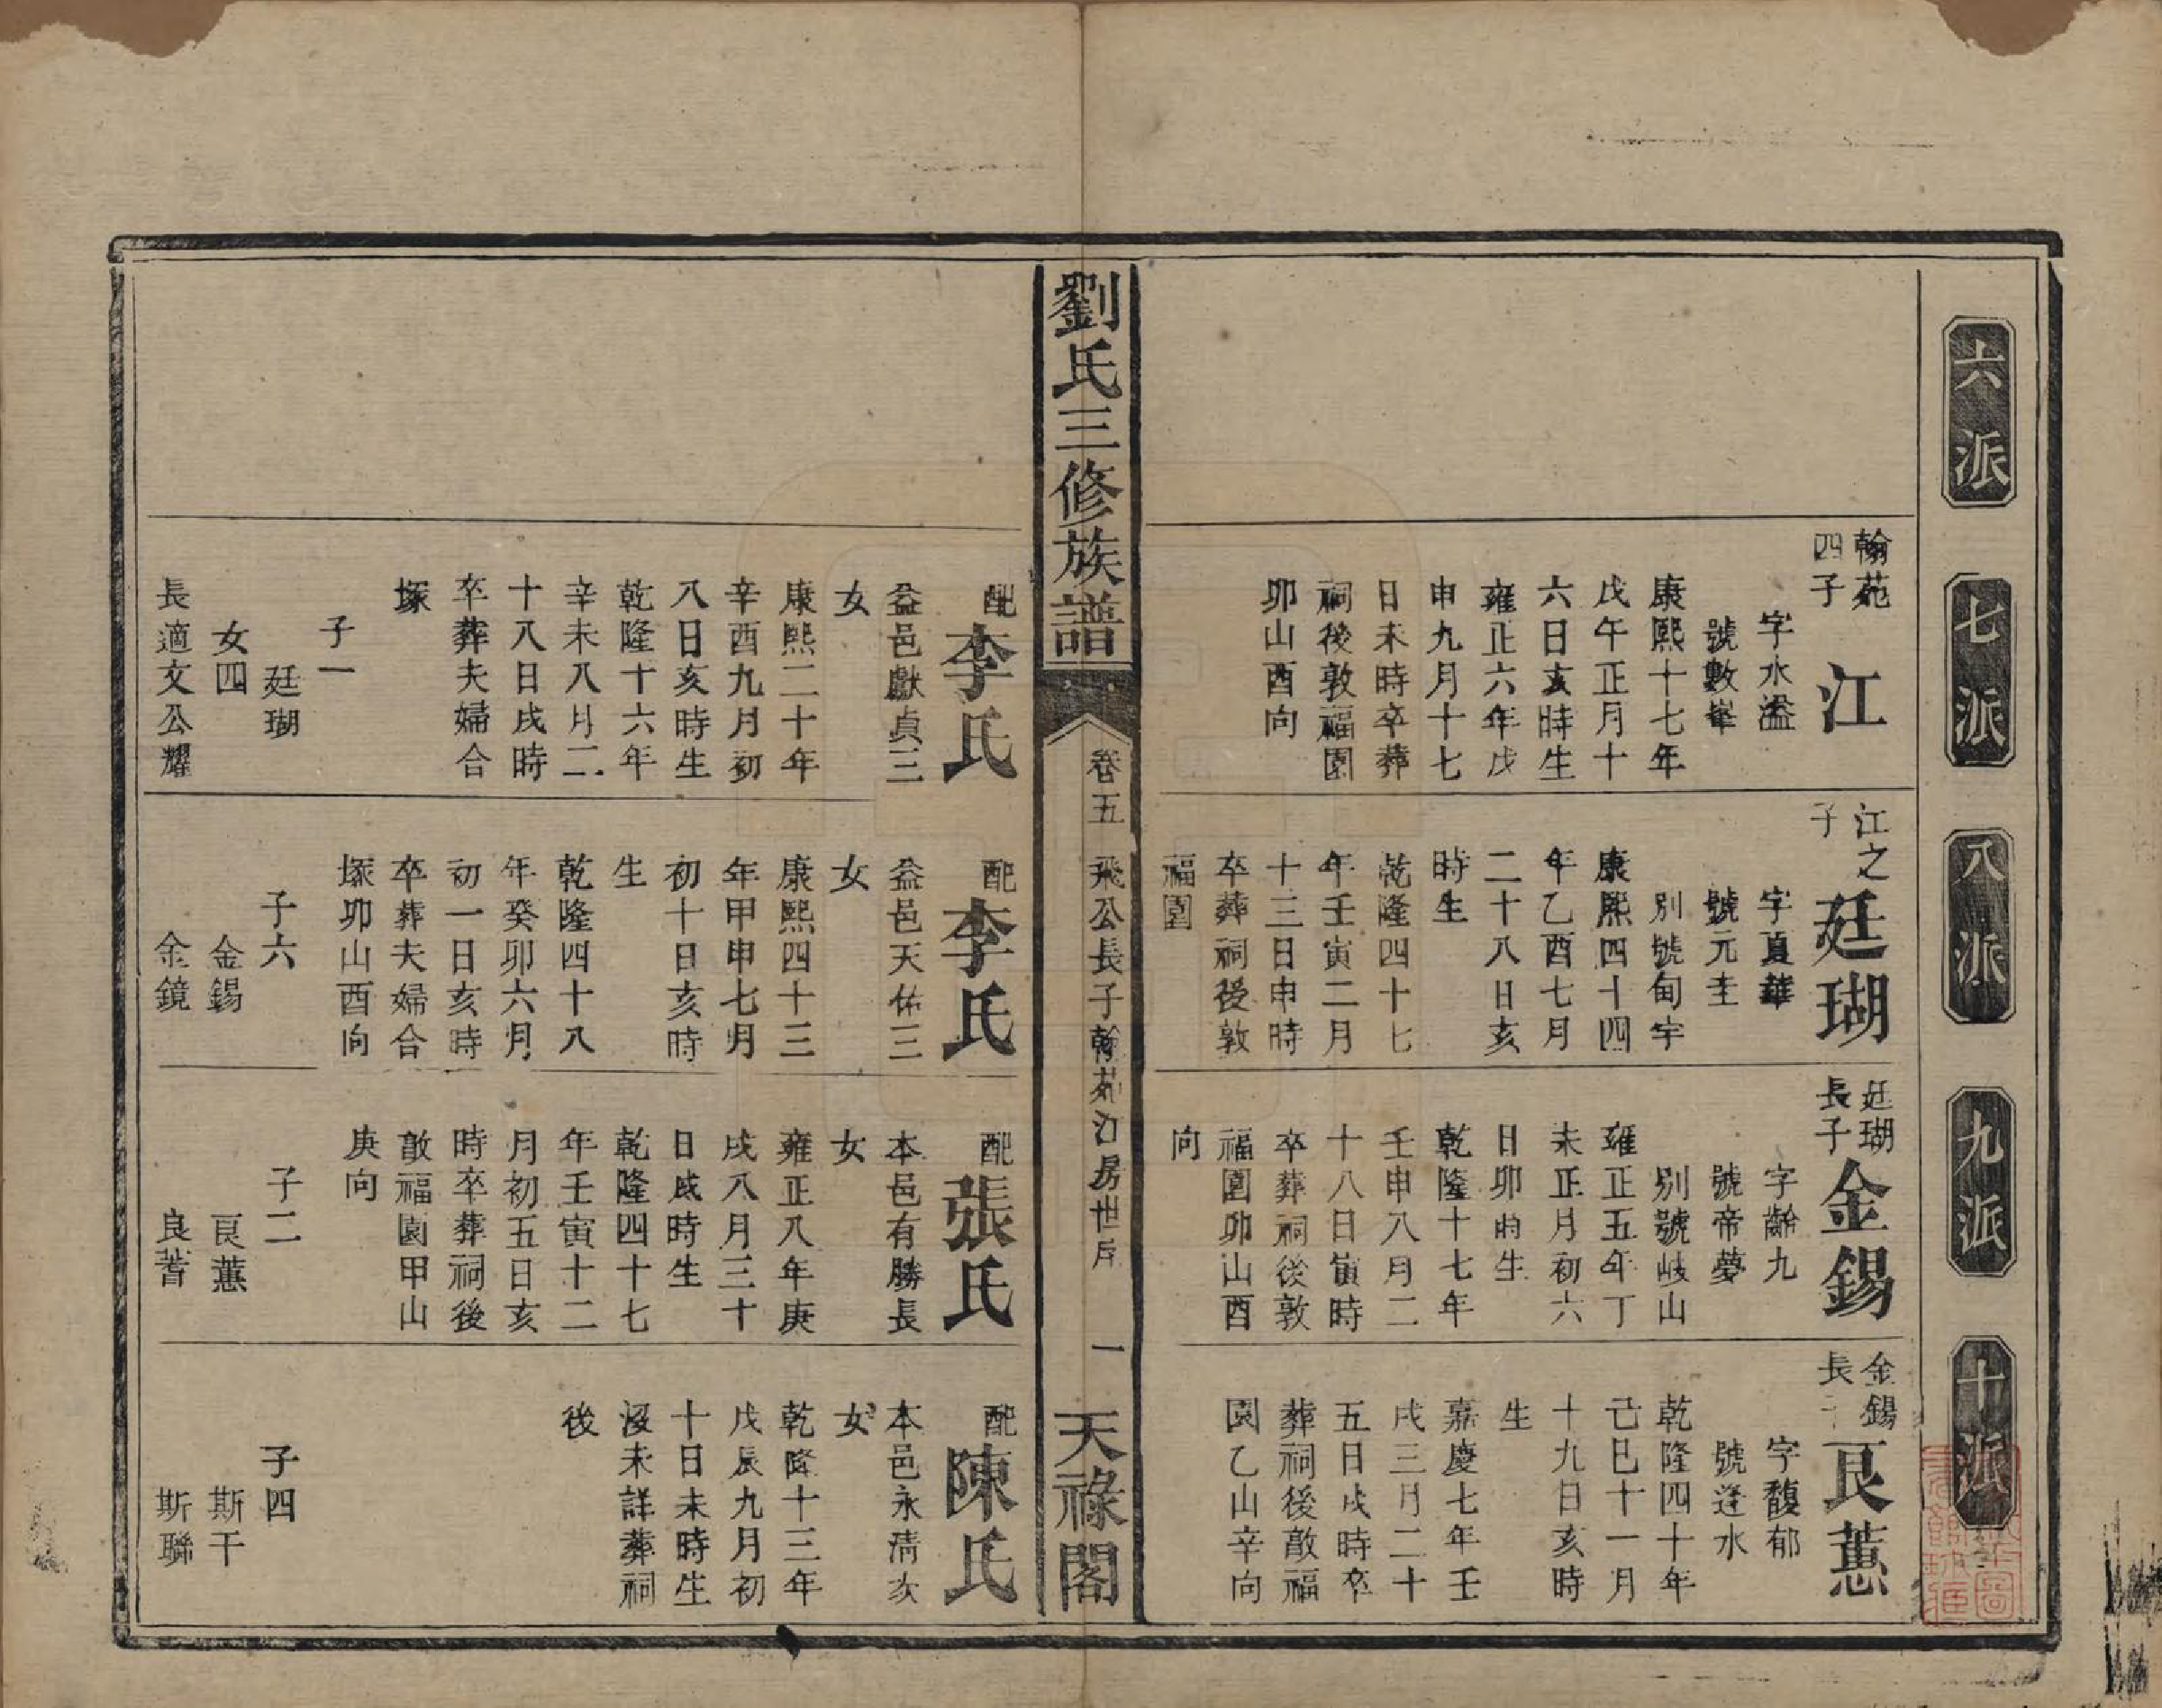 六派
七派
八派
九派
十派
翰苑
四子
江
字水溢
號數峯
康熙十七年
戊午正月十
六日亥時生
雍正六年戊
申九月十七
日未時卒葬
祠後敦福園
卯山酉向
江之
子
廷瑚
字夏華
號元圭
別號甸宇
康熙四十四
年乙酉七月
二十八日亥
時生
乾隆四十七
年壬寅二月
十三日申時
卒葬祠後敦
福園
廷瑚
長子
金錫
字齡九
號帝夢
別號岐山
雍正五年丁
未正月初六
日卯時生
乾隆十七年
壬申八月二
十八日寅時
卒葬祠後敦
福園卯山酉
向
金錫
長子
艮蕙
字馥郁
號逢水
乾隆四十年
己巳十一月
十九日亥時
生
嘉慶七年壬
戌三月二十
五日戌時卒
葬祠後敵福
園乙山辛向
劉氏三修族譜
卷五
飛公長子翰苑江房世序
一
天祿閣
配
李氏
益邑獻貞三
女
康熙二十年
辛酉九月初
八日亥時生
乾隆十六年
辛未八月二
十八日戌時
卒葬夫婦合
塚
子一
廷瑚
女四
長適文公耀
配
李氏
益邑天佑三
女
康熙四十三
年甲申七月
初十日亥時
生
乾隆四十八
年癸卯六月
初一日亥時
卒葬夫婦合
塚卯山酉向
子六
金錫
金鏡
配
張氏
本邑有勝長
女
雍正八年庚
戌八月三十
日戌時生
乾隆四十七
年壬寅十二
月初五日亥
時卒葬祠後
敵福園甲山
庚向
子二
艮蕙
良蓍
配
陳氏
本邑永清次
女
乾隆十三年
戊辰九月初
十日未時生
沒未詳葬祠
後
子四
斯干
斯聯